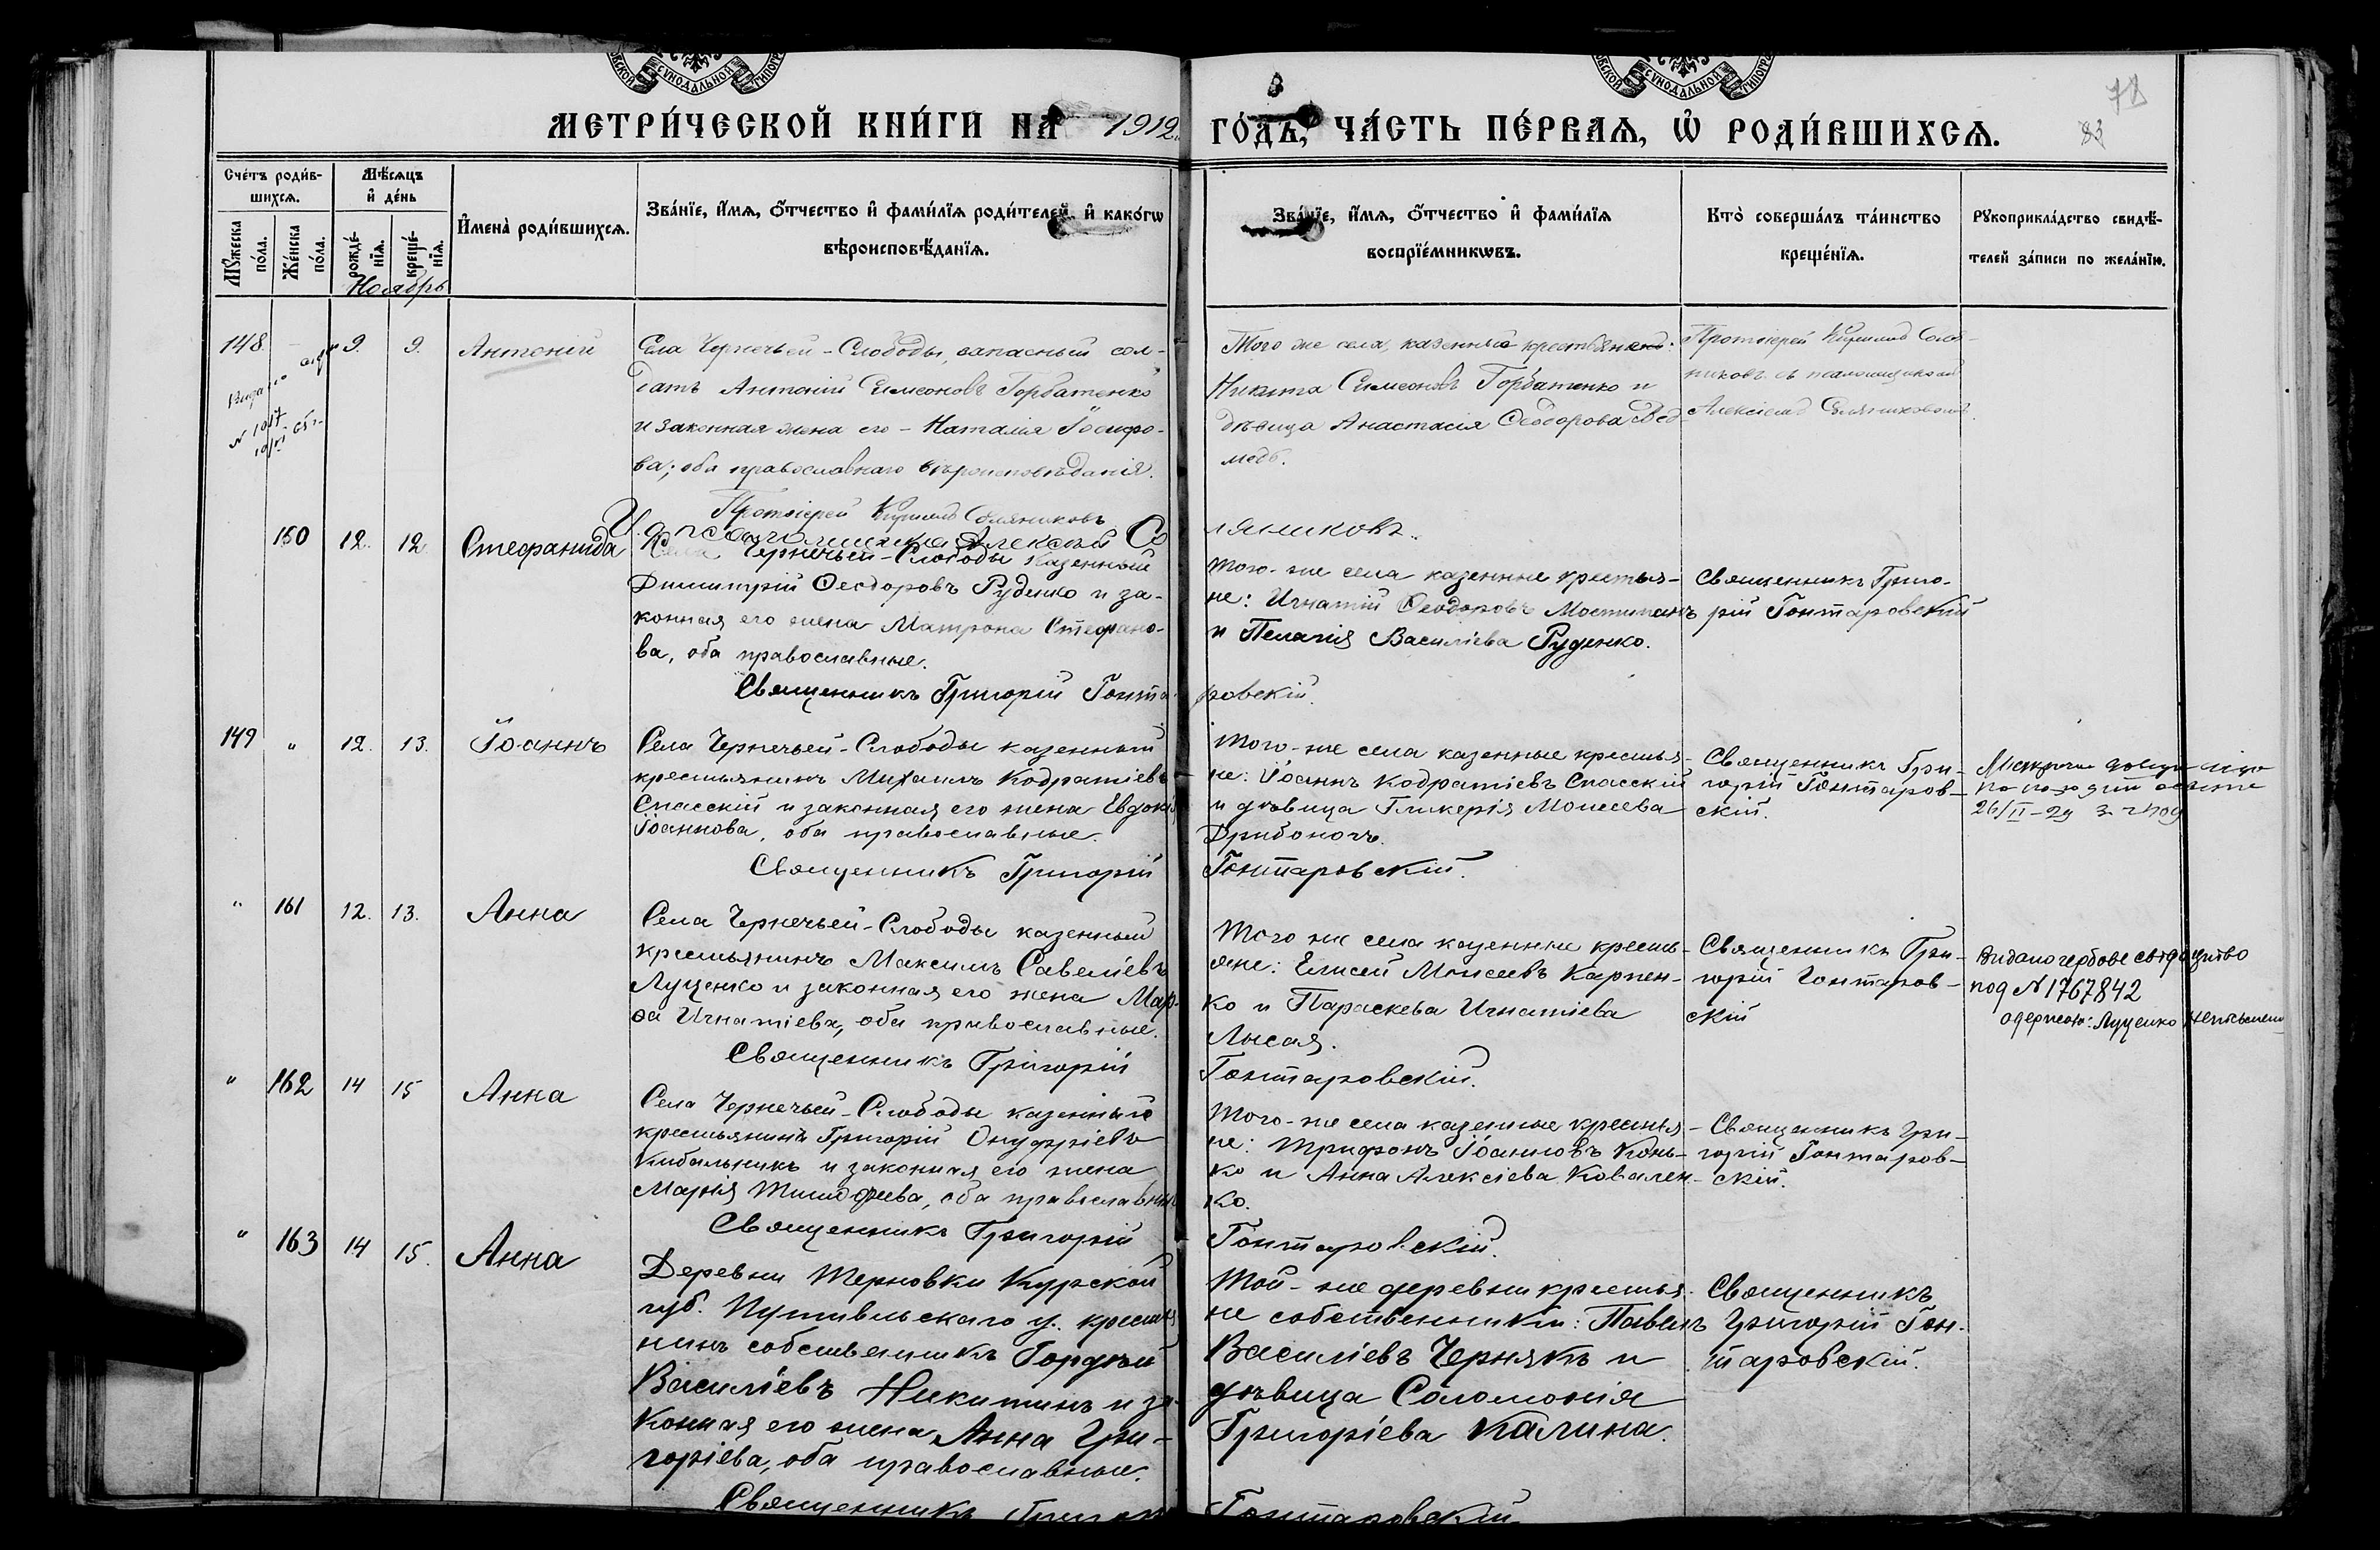 СУНОДАЛЬНОЙ
СУНОДАЛЬНОЙ
МЕТРИ́ЧЕСКОЙ КНИ́ГИ НА 1912
ГО́ДЪ, ЧА́СТЬ ПЕ́РВАЯ, Ѽ РОДИ́ВШИХСЯ.
78
83
Сче́тъ роди́в-
шихся.
Мѣ́сяцъ
и҆ де́нь
Мꙋ́жеска
по́ла.
Же́нска
по́ла.
рожде́-
нїя.
креще́-
нїя.
Ноябрь
И҆мена̀ роди́вшихся.
Зва́нїе, и҆́мя, ѻ҆́тчество и҆ фами́лїя роди́телей, и҆ како́гѡ
вѣроисповѣ́данїя.
Зва́нїе, и҆́мя, ѻ҆́тчество и҆ фами́лїя
воспрїе́мникѡвъ.
Кто̀ соверша́лъ та́инство
креще́нїя.
Рꙋкоприкла́дство свидѣ́-
телей за́писи по жела́нїю.
148. 9. 9. Антоній
№ 1017
Села Чернечьей-Слободы, запасный сол-
датъ Антоній Симеоновъ Горбатенко
и законная жена его - Наталія Іосифо-
ва; оба православнаго вѣроисповѣданія.
Протоіерей Кириллъ Соляниковъ
И. д. псаломщика Алексѣй Со
ляниковъ.
Того же села, казенные крестьяне:
Никита Симеоновъ Горбатенко и
дѣвица Анастасія Ѳеодорова Вед-
медь.
Протоіерей Кириллъ Соля-
никовъ съ псаломщикомъ
Алексіемъ Соляниковымъ.
160 12. 12 Стефанида
Села Чернечьей-Слободы казенный
Димитрій Ѳеодоровъ Руденко и за-
конная его жена Матрона Стефано-
ва, оба православные.
Священникъ Григорій Гонта
ровскій.
Того-же села казенные крестья-
не: Игнатій Ѳеодоровъ
и Пелагія Василіева Руденко.
Священникъ Григо-
рій Гонтаровскій
149 " 12. 13. Іоаннъ
Села Чернечьей-Слободы казенный
крестьянинъ Михаилъ Кодратіевъ
Спасскій и законная его жена Евдокія
Іоаннова, оба православные.
Священникъ Григорій
Гонтаровскій.
Того-же села казенные крестья-
не: Іоаннъ Кодратіевъ Спасскій
и дѣвица Гликерія Моисеева
Дрибоногъ.
Священникъ Гри-
горій Гонтаров-
скій.
26/II-29
" 161 12. 13. Анна
Села Чернечьей-Слободы казенный
крестьянинъ Максимъ Савеліевъ
Луценко и законная его жена Мар-
ѳа Игнатіева, оба православные.
Священникъ Григорій
Гонтаровскій.
Того же села казенные кресть-
яне: Елисей Моисеевъ Карпен-
ко и Параскева Игнатіева
Лысая.
Священникъ Гри-
горій Гонтаров-
скій
Видано гербове свідоцтво
под № 1767842
одержала: Луценко
" 162 14 15 Анна
Села Чернечьей-Слободы казенный
крестьянинъ Григорій Онуфріевъ
Кибальникъ и законная его жена
Марія Тимоѳеева, оба православные
Священникъ Григорій
Гонтаровскій.
Того-же села казенные крестья-
не: Трифонъ Іоанновъ Конь-
ко и Анна Алексіева Ковален-
ко.
Священникъ Гри-
горій Гонтаров-
скій.
" 163 14 15. Анна
Деревни Терновки Курской
губ. Путивльскаго у. крестья
нинъ собственникъ Гордѣй
Василіевъ Никитинъ и за-
конная его жена Анна Гри-
горіева, оба православные.
Священникъ Григорій
Гонтаровскій
Той-же деревни крестья-
не собственники: Павелъ
Василіевъ Чернякъ и
дѣвица Соломонія
Григоріева Калина.
Священникъ
Григорій Гон-
таровскій.